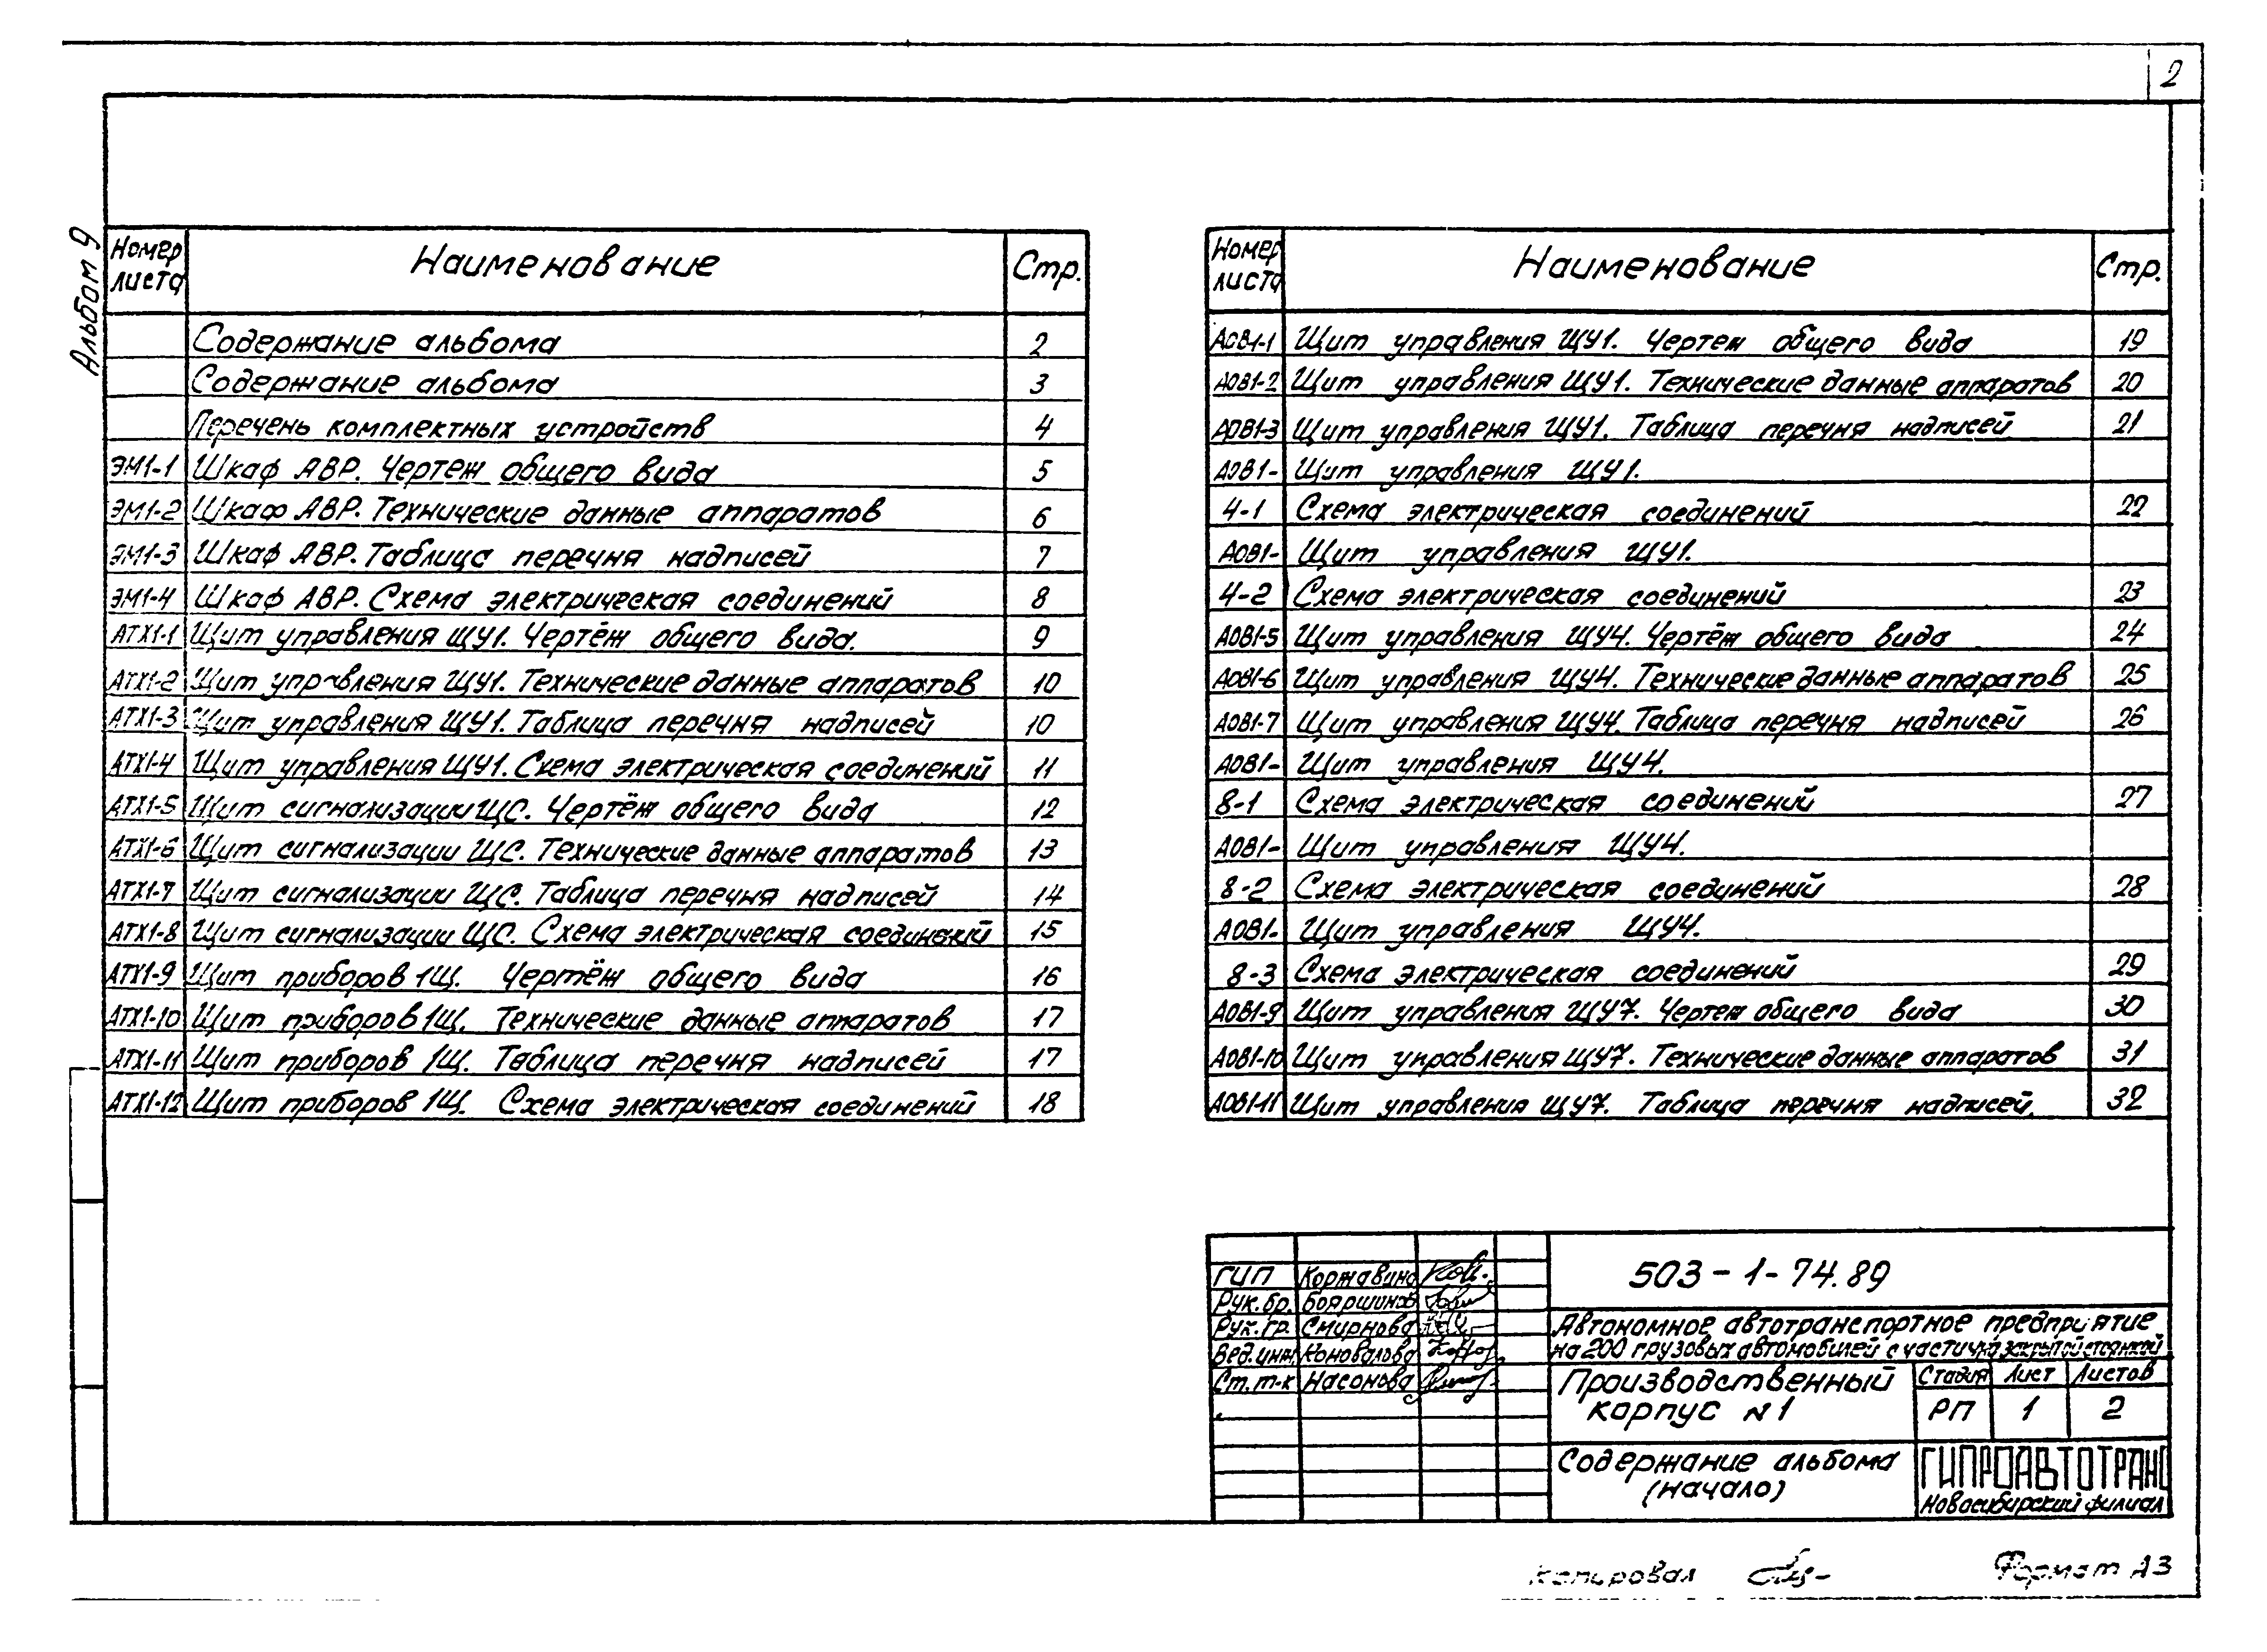 2
Альбом 9
Номер листа Наименование Стр.
Содержание альбома 2
Содержание альбома 3
Перечень комплектных устройств 4
ЭМ1-1 Шкаф АВР. Чертеж общего вида 5
ЭМ1-2 Шкаф АВР. Технические данные аппаратов 6
ЭМ1-3 Шкаф АВР. Таблица перечня надписей 7
ЭМ1-4 Шкаф АВР. Схема электрическая соединений 8
АТХ1-1 Щит управления ЩУ1. Чертёж общего вида. 9
АТХ1-2 Щит управления ЩУ1. Технические данные аппаратов 10
АТХ1-3 Щит управления ЩУ1. Таблица перечня надписей 10
АТХ1-4 Щит управления ЩУ1. Схема электрическая соединений 11
АТХ1-5 Щит сигнализации ЩС. Чертёж общего вида 12
АТХ1-6 Щит сигнализации ЩС. Технические данные аппаратов 13
АТХ1-7 Щит сигнализации ЩС. Таблица перечня надписей 14
АТХ1-8 Щит сигнализации ЩС. Схема электрическая соединений 15
АТХ1-9 Щит приборов 1Щ. Чертёж общего вида 16
АТХ1-10 Щит приборов 1Щ. Технические данные аппаратов 17
АТХ1-11 Щит приборов 1Щ. Таблица перечня надписей 17
АТХ1-12 Щит приборов 1Щ. Схема электрическая соединений 18
Номер листа Наименование Стр.
АОВ1-1 Щит управления ЩУ1. Чертеж общего вида 19
АОВ1-2 Щит управления ЩУ1. Технические данные аппаратов 20
АОВ1-3 Щит управления ЩУ1. Таблица перечня надписей 21
АОВ1- Щит управления ЩУ1.
4-1 Схема электрическая соединений 22
АОВ1- Щит управления ЩУ1.
4-2 Схема электрическая соединений 23
АОВ1-5 Щит управления ЩУ4. Чертёж общего вида 24
АОВ1-6 Щит управления ЩУ4. Технические данные аппаратов 25
АОВ1-7 Щит управления ЩУ4. Таблица перечня надписей 26
АОВ1- Щит управления ЩУ4.
8-1 Схема электрическая соединений 27
АОВ1- Щит управления ЩУ4.
8-2 Схема электрическая соединений 28
АОВ1- Щит управления ЩУ4.
8-3 Схема электрическая соединений 29
АОВ1-9 Щит управления ЩУ7. Чертеж общего вида 30
АОВ1-10 Щит управления ЩУ7. Технические данные аппаратов 31
АОВ1-11 Щит управления ЩУ7. Таблица перечня надписей. 32
ГИП Коржавина
Рук.бр. Бояршинов
Рук.гр. Смирнова
Вед.инж Коновалова
Ст.т-к Насонова
503-1-74.89
Автономное автотранспортное предприятие
на 200 грузовых автомобилей с частично закрытой стоянкой
Производственный
корпус №1
Стадия Лист Листов
РП 1 2
Содержание альбома
(начало)
ГИПРОАВТОТРАНС
Новосибирский филиал
Копировал
Формат А3